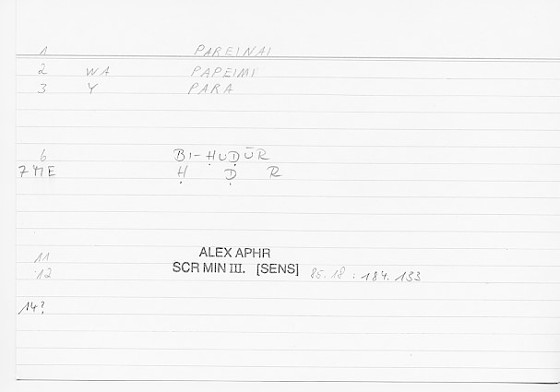 1 PAREINAI
2 WA PAPEIMI
3 Y PARA
6 BI-ḤUḌŪR
7 41E Ḥ Ḍ R
11 ALEX APHR
12 SCR MIN III. [SENS] 85.18 : 184.133
14?